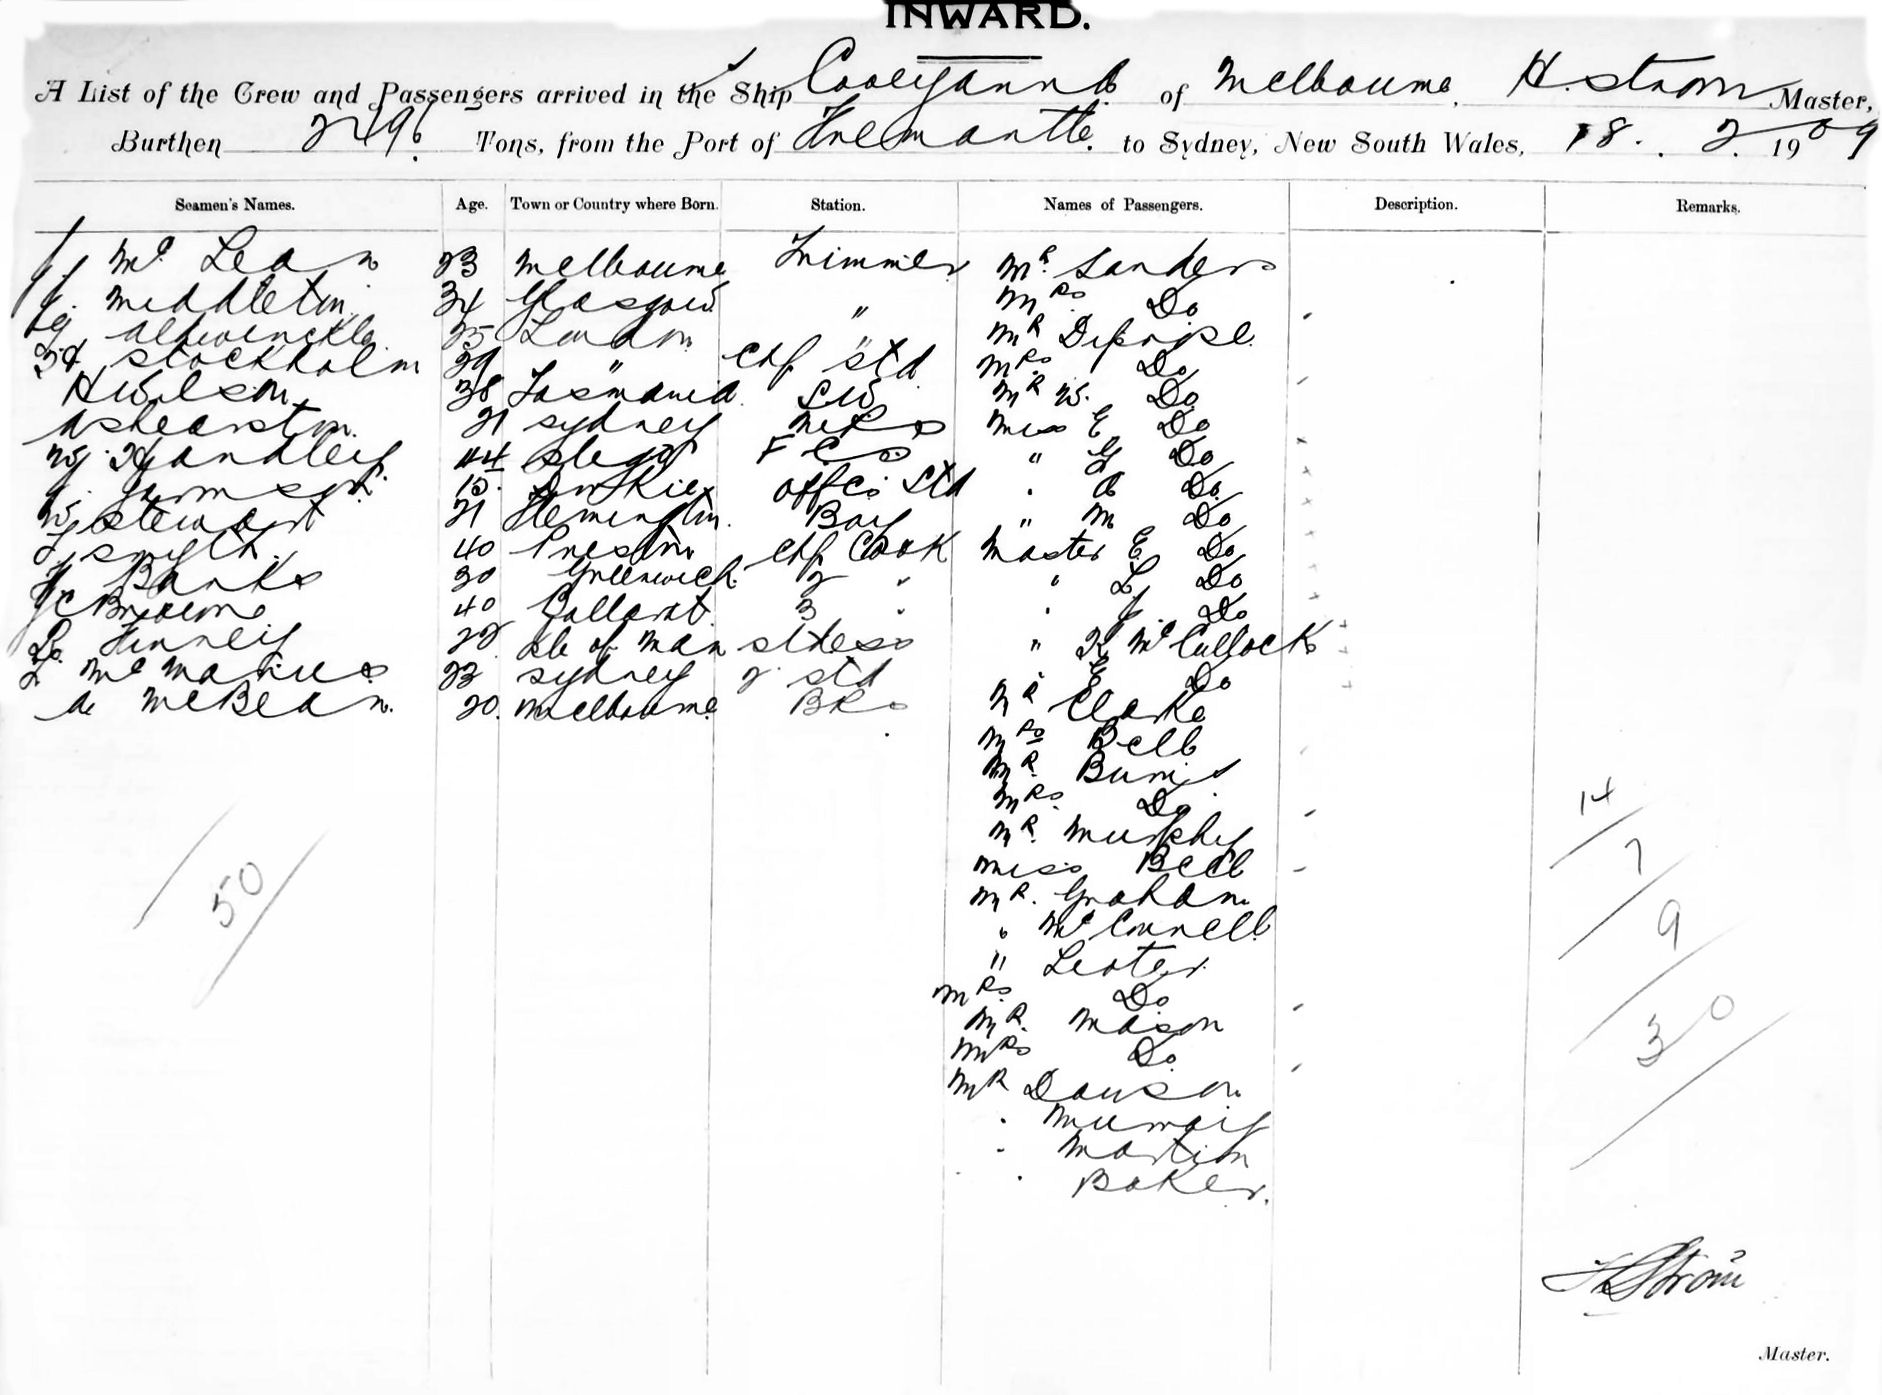 INWARD.
A List of the Crew and Passengers arrived in the Ship Cooeyanna of Melbourne. H. Strom Master,
Burthen 2496. Tons, from the Port of Fremantle. to Sydney, New South Wales, 18. 2. 1909
Seamen's Names. Age. Town or Country where Born. Station. Names of Passengers. Description. Remarks.
Mc Lean 23 Melbourne Trimmer Mr. Sanders
J. Middleton 34 Glasgow " Mrs Do
25 London " Mr
Stockholm 39 " Chf Std Mrs Do
H Wilson 38 Tasmania SW Mr W. Do
A Shearston 21 Sydney Miss E Do
W J Handley 44 F C S " G Do
15. Office Std " A Do
W Stewart 21 Flemington Boy " M Do
J Smyth. 40 Preston Chf Cook Master E Do
Banks 30 Greenwich 2 " " L Do
C Browne 40 Ballarat 3 " " J Do
Finney 22 Isle of Man Stdess " R McCullock
23 Sydney 2 Std " E Do
A McBean. 20. Melbourne BRs Mr Clarke
Mrs Bell
Mr.
Mrs. Do
Mr. Murphy
Miss Bell
Mr. Graham
" McConnell
"
Mrs. Do
Mr. Mason
Mrs Do
Mr Dawson
" Murray
" Martin
" Baker.
50
14
7
9
30
H Ström
Master.